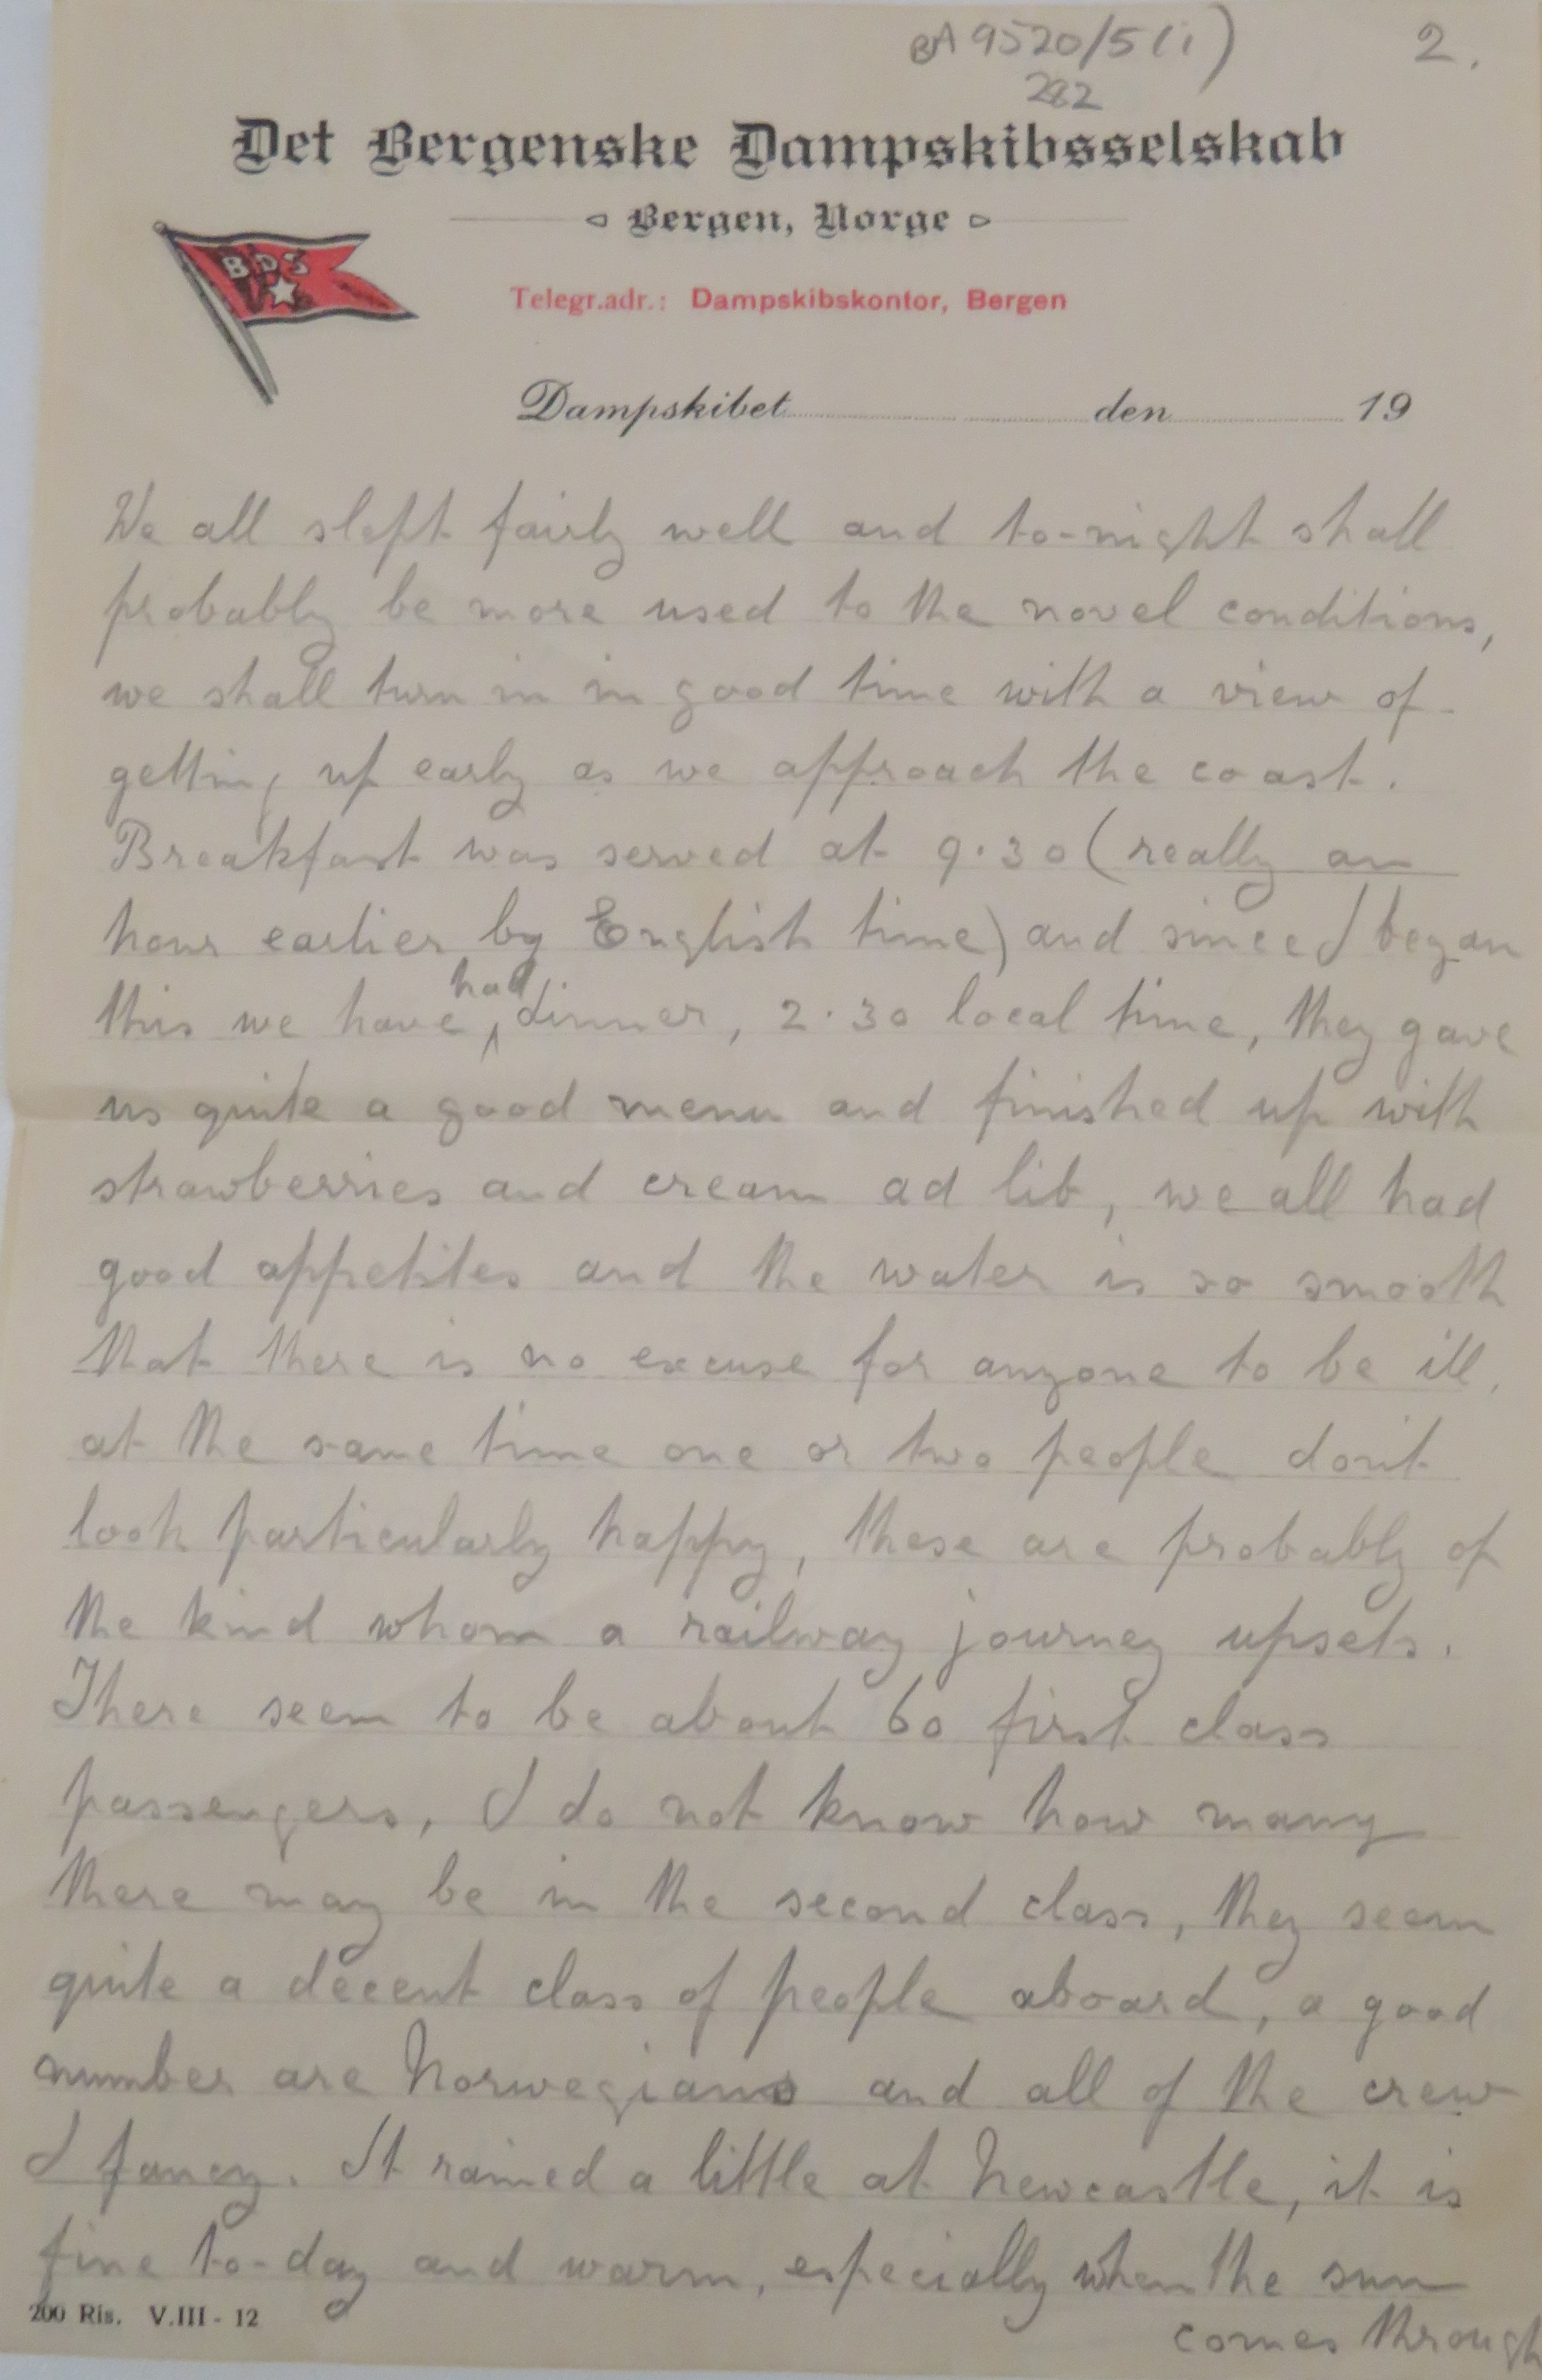 BA 9520/5(i)
2.
282
Det Bergenske Dampskibsselskab
Bergen, Norge
BDS
Telegr.adr.: Dampskibskontor, Bergen
Dampskibet den 19
We all slept fairly well and to-night shall
probably be more used to the novel conditions,
we shall turn in in good time with a view of
getting up early as we approach the coast.
Breakfast was served at 9.30 (really an
hour earlier by English time) and since I began
this we have had dinner, 2.30 local time, they gave
us quite a good menu and finished up with
strawberries and cream ad lib, we all had
good appetites and the water is so smooth
that there is no excuse for anyone to be ill,
at the same time one or two people don't
look particularly happy, these are probably of
the kind whom a railway journey upsets.
There seem to be about 60 first class
passengers, I do not know how many
there may be in the second class, they seem
quite a decent class of people aboard, a good
number are Norwegians and all of the crew
I fancy. It rained a little at Newcastle, it is
fine to-day and warm, especially when the sun
comes through
200 Ris. V.III - 12